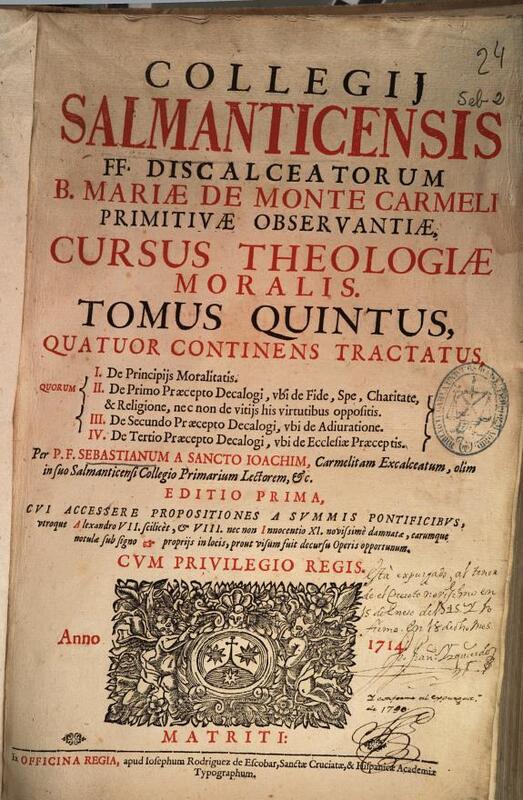 24
Seb-2
COLLEGIJ
SALMANTICENSIS
FF. DISCALCEATORUM
B. MARIÆ DE MONTE CARMELI
PRIMITIVÆ OBSERVANTIÆ,
CURSUS THEOLOGIÆ
MORALIS.
TOMUS QUINTUS,
QUATUOR CONTINENS TRACTATUS,
QUORUM
I. De Principijs Moralitatis.
II. De Primo Præcepto Decalogi, vbi de Fide, Spe, Charitate,
& Religione, nec non de vitijs his virtutibus oppositis.
III. De Secundo Præcepto Decalogi, vbi de Adiuratione.
IV. De Tertio Præcepto Decalogi, vbi de Ecclesiæ Præceptis.
Per P. F. SEBASTIANUM A SANCTO IOACHIM, Carmelitam Excalceatum, olim
in suo Salmanticensi Collegio Primarium Lectorem, &c.
EDITIO PRIMA,
CVI ACCESSERE PROPOSITIONES A SVMMIS PONTIFICIBVS,
vtroque Alexandro VII. scilicèt, & VIII. nec non Innocentio XI. novissimè damnatæ, earumque
notulæ sub signo ☞ proprijs in locis, prout visum fuit decursu Operis opportunum.
CVM PRIVILEGIO REGIS.
Esta expurgado, al tenor
de el Decreto novissimo en
Anno
1714.
de 1790
MATRITI:
Ex OFFICINA REGIA, apud Iosephum Rodriguez de Escobar, Sanctæ Cruciatæ, & Hispanicæ Academiæ
Typographum.